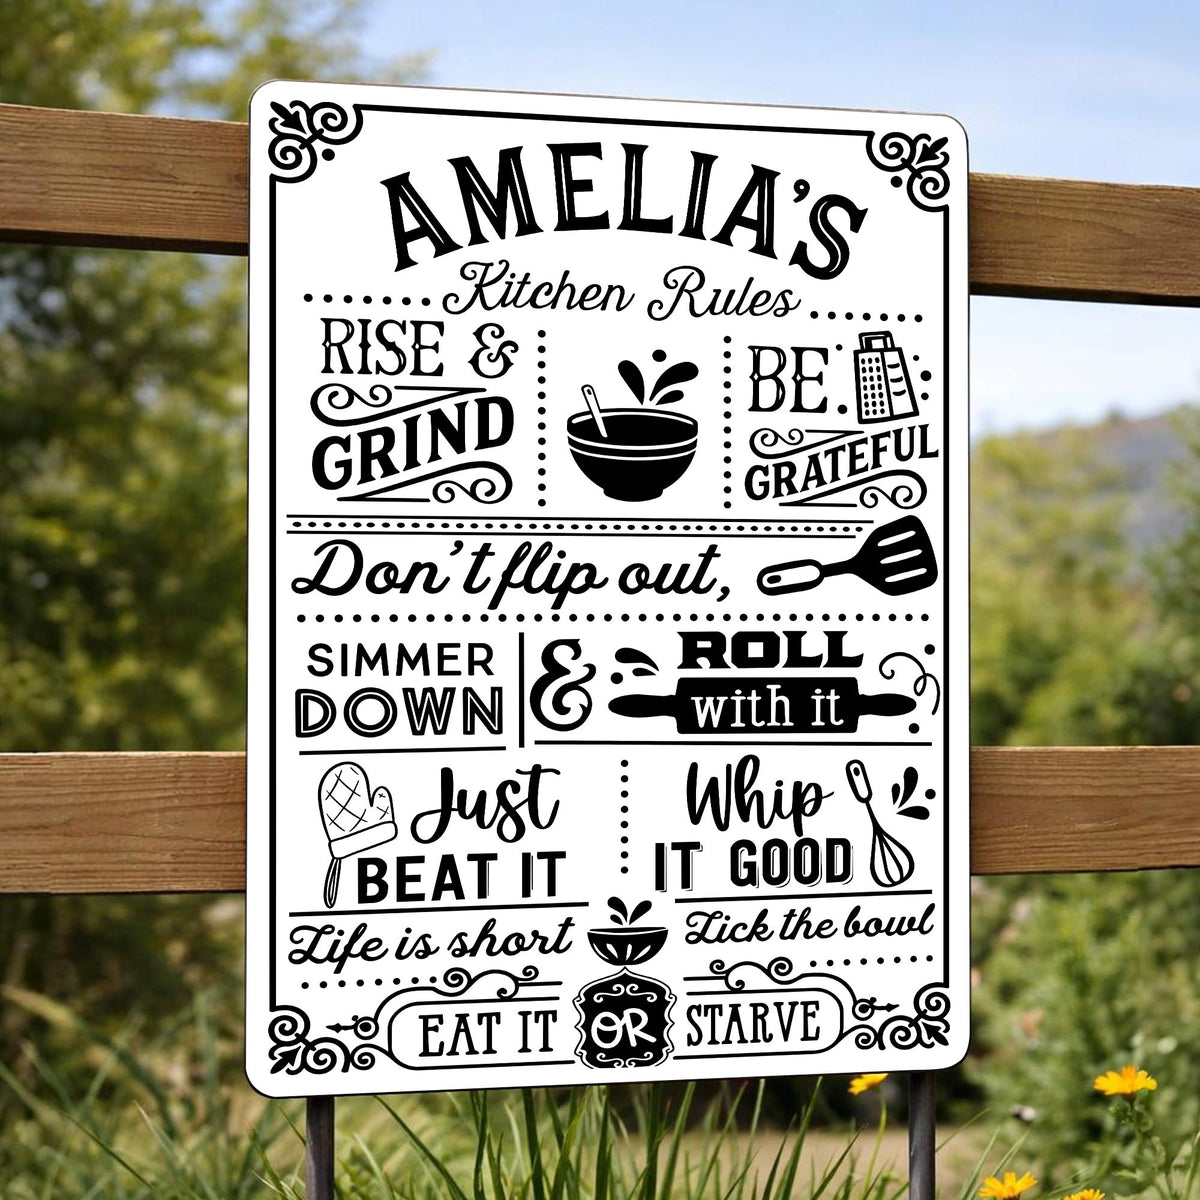 AMELIA'S
Kitchen Rules
RISE &
GRIND
BE
GRATEFUL
Don't flip out,
SIMMER
DOWN
&
ROLL
with it
Just
BEAT IT
Whip
IT GOOD
Life is short
Lick the bowl
EAT IT OR STARVE